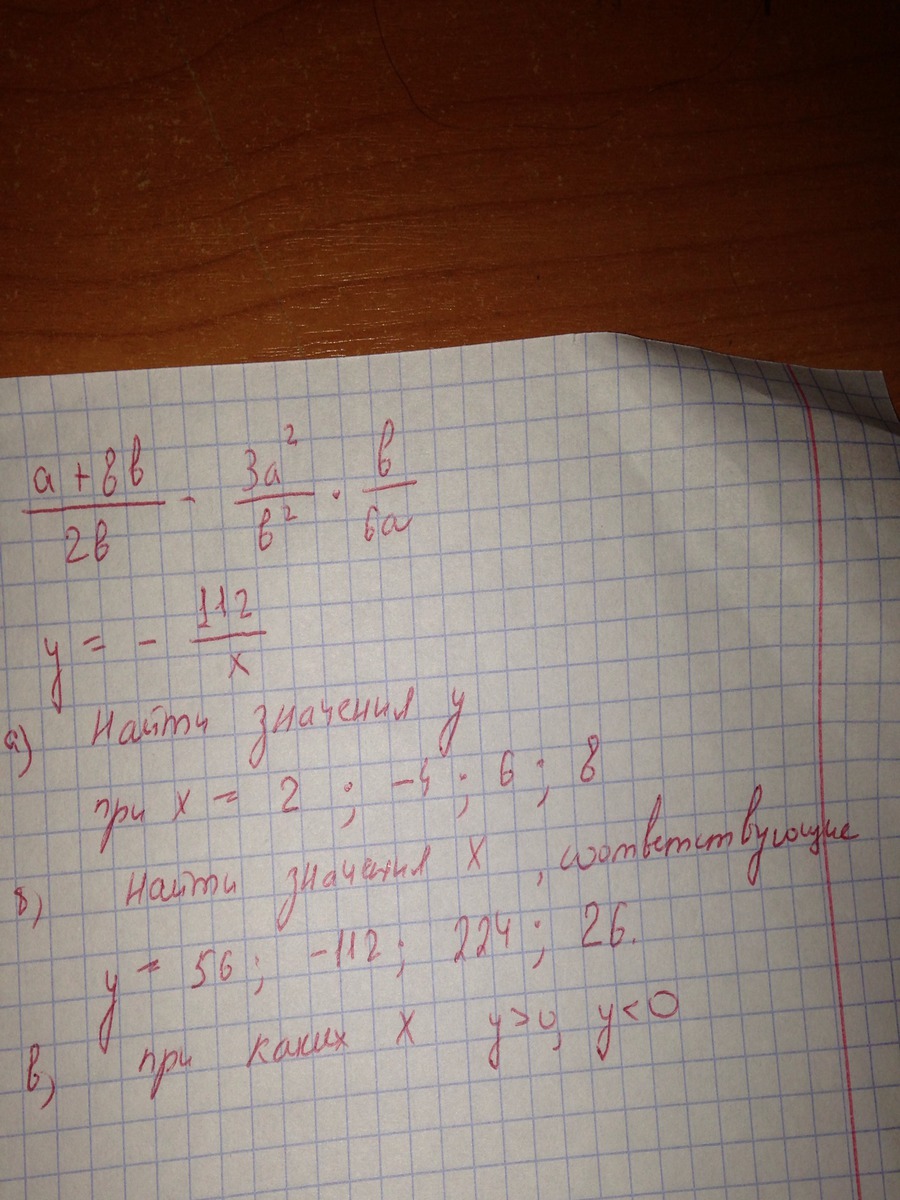 (a + 8b)/(2b) - (3a²)/(b²) · b/(6a)
y = - 112/x
а) Найти значения y
при x = 2 ; -4 ; 6 ; 8
б) Найти значения x , соответствующие
y = 56 ; -112 ; 224 ; 26.
в) при каких x y>0, y<0